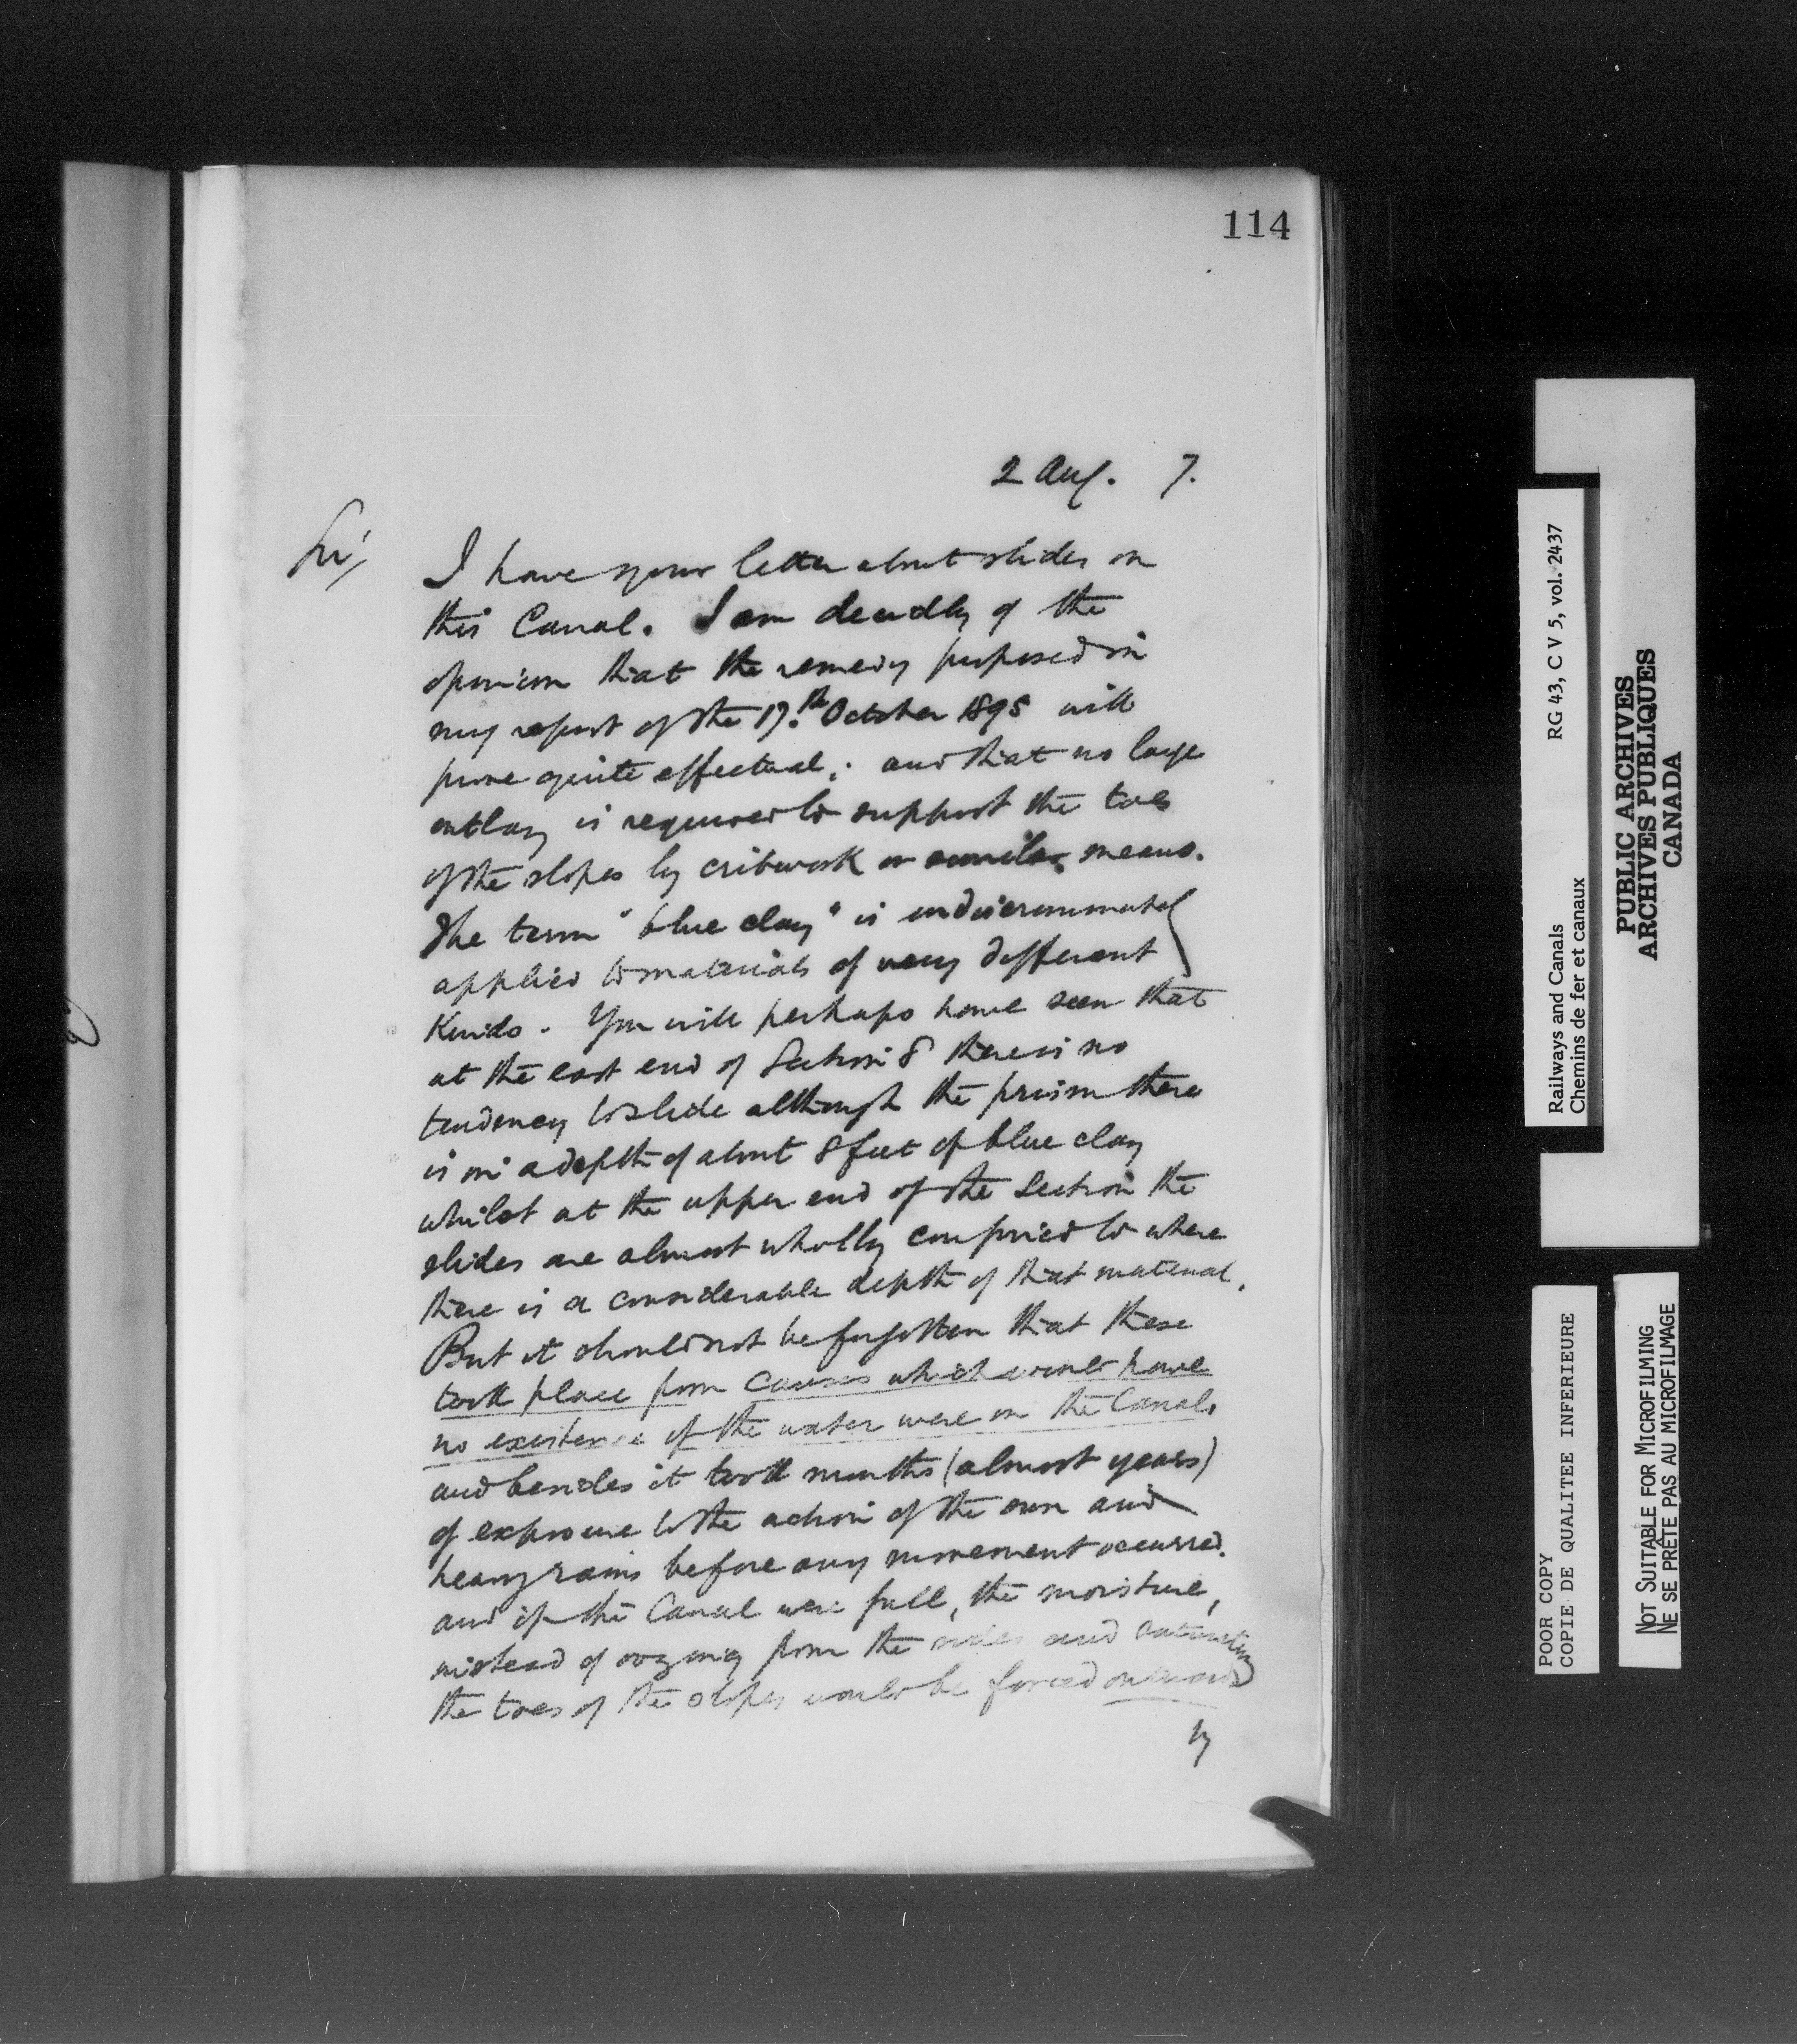 114
2 Aug. 7.
Sir,
I have your letter about slides on
this Canal. I am decidedly of the
opinion that the remedy proposed in
my report of the 17th October 1895 will
prove quite effectual; and that no large
outlay is required to support the toes
of the slopes by cribwork or similar means.
The term "blue clay" is indiscriminately
applied to materials of very different
kinds. You will perhaps have seen that
at the east end of Section 8 there is no
tendency to slide although the prism there
is in a depth of about 8 feet of blue clay
whilst at the upper end of the Section the
slides are almost wholly confined to where
there is a considerable depth of that material.
But it should not be forgotten that these
took place from causes which would have
no existence if the water were in the Canal,
and besides it took months (almost years)
of exposure to the action of the sun and
heavy rains before any movement occurred.
and if the Canal were full, the moisture,
instead of oozing from the sides and saturating
the toes of the slopes would be forced onwards
by
Railways and Canals RG 43, C V 5, vol. 2437
Chemins de fer et canaux
PUBLIC ARCHIVES
ARCHIVES PUBLIQUES
CANADA
POOR COPY
COPIE DE QUALITEE INFERIEURE
NOT SUITABLE FOR MICROFILMING
NE SE PRÊTE PAS AU MICROFILMAGE